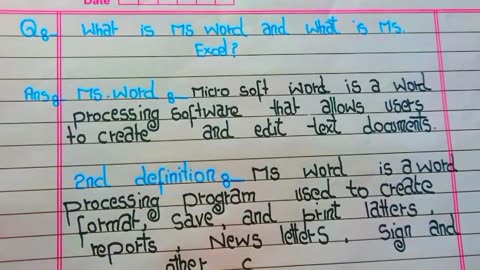 Date
Q8- What is Ms Word and What is Ms.
Excel?
Ans8 Ms. Word 8- Micro soft word is a word
processing software that allows users
to create and edit text documents.
2nd definition 8- Ms word is a word
processing program used to create
format, save, and print latters,
reports, News letters, Sign and
other